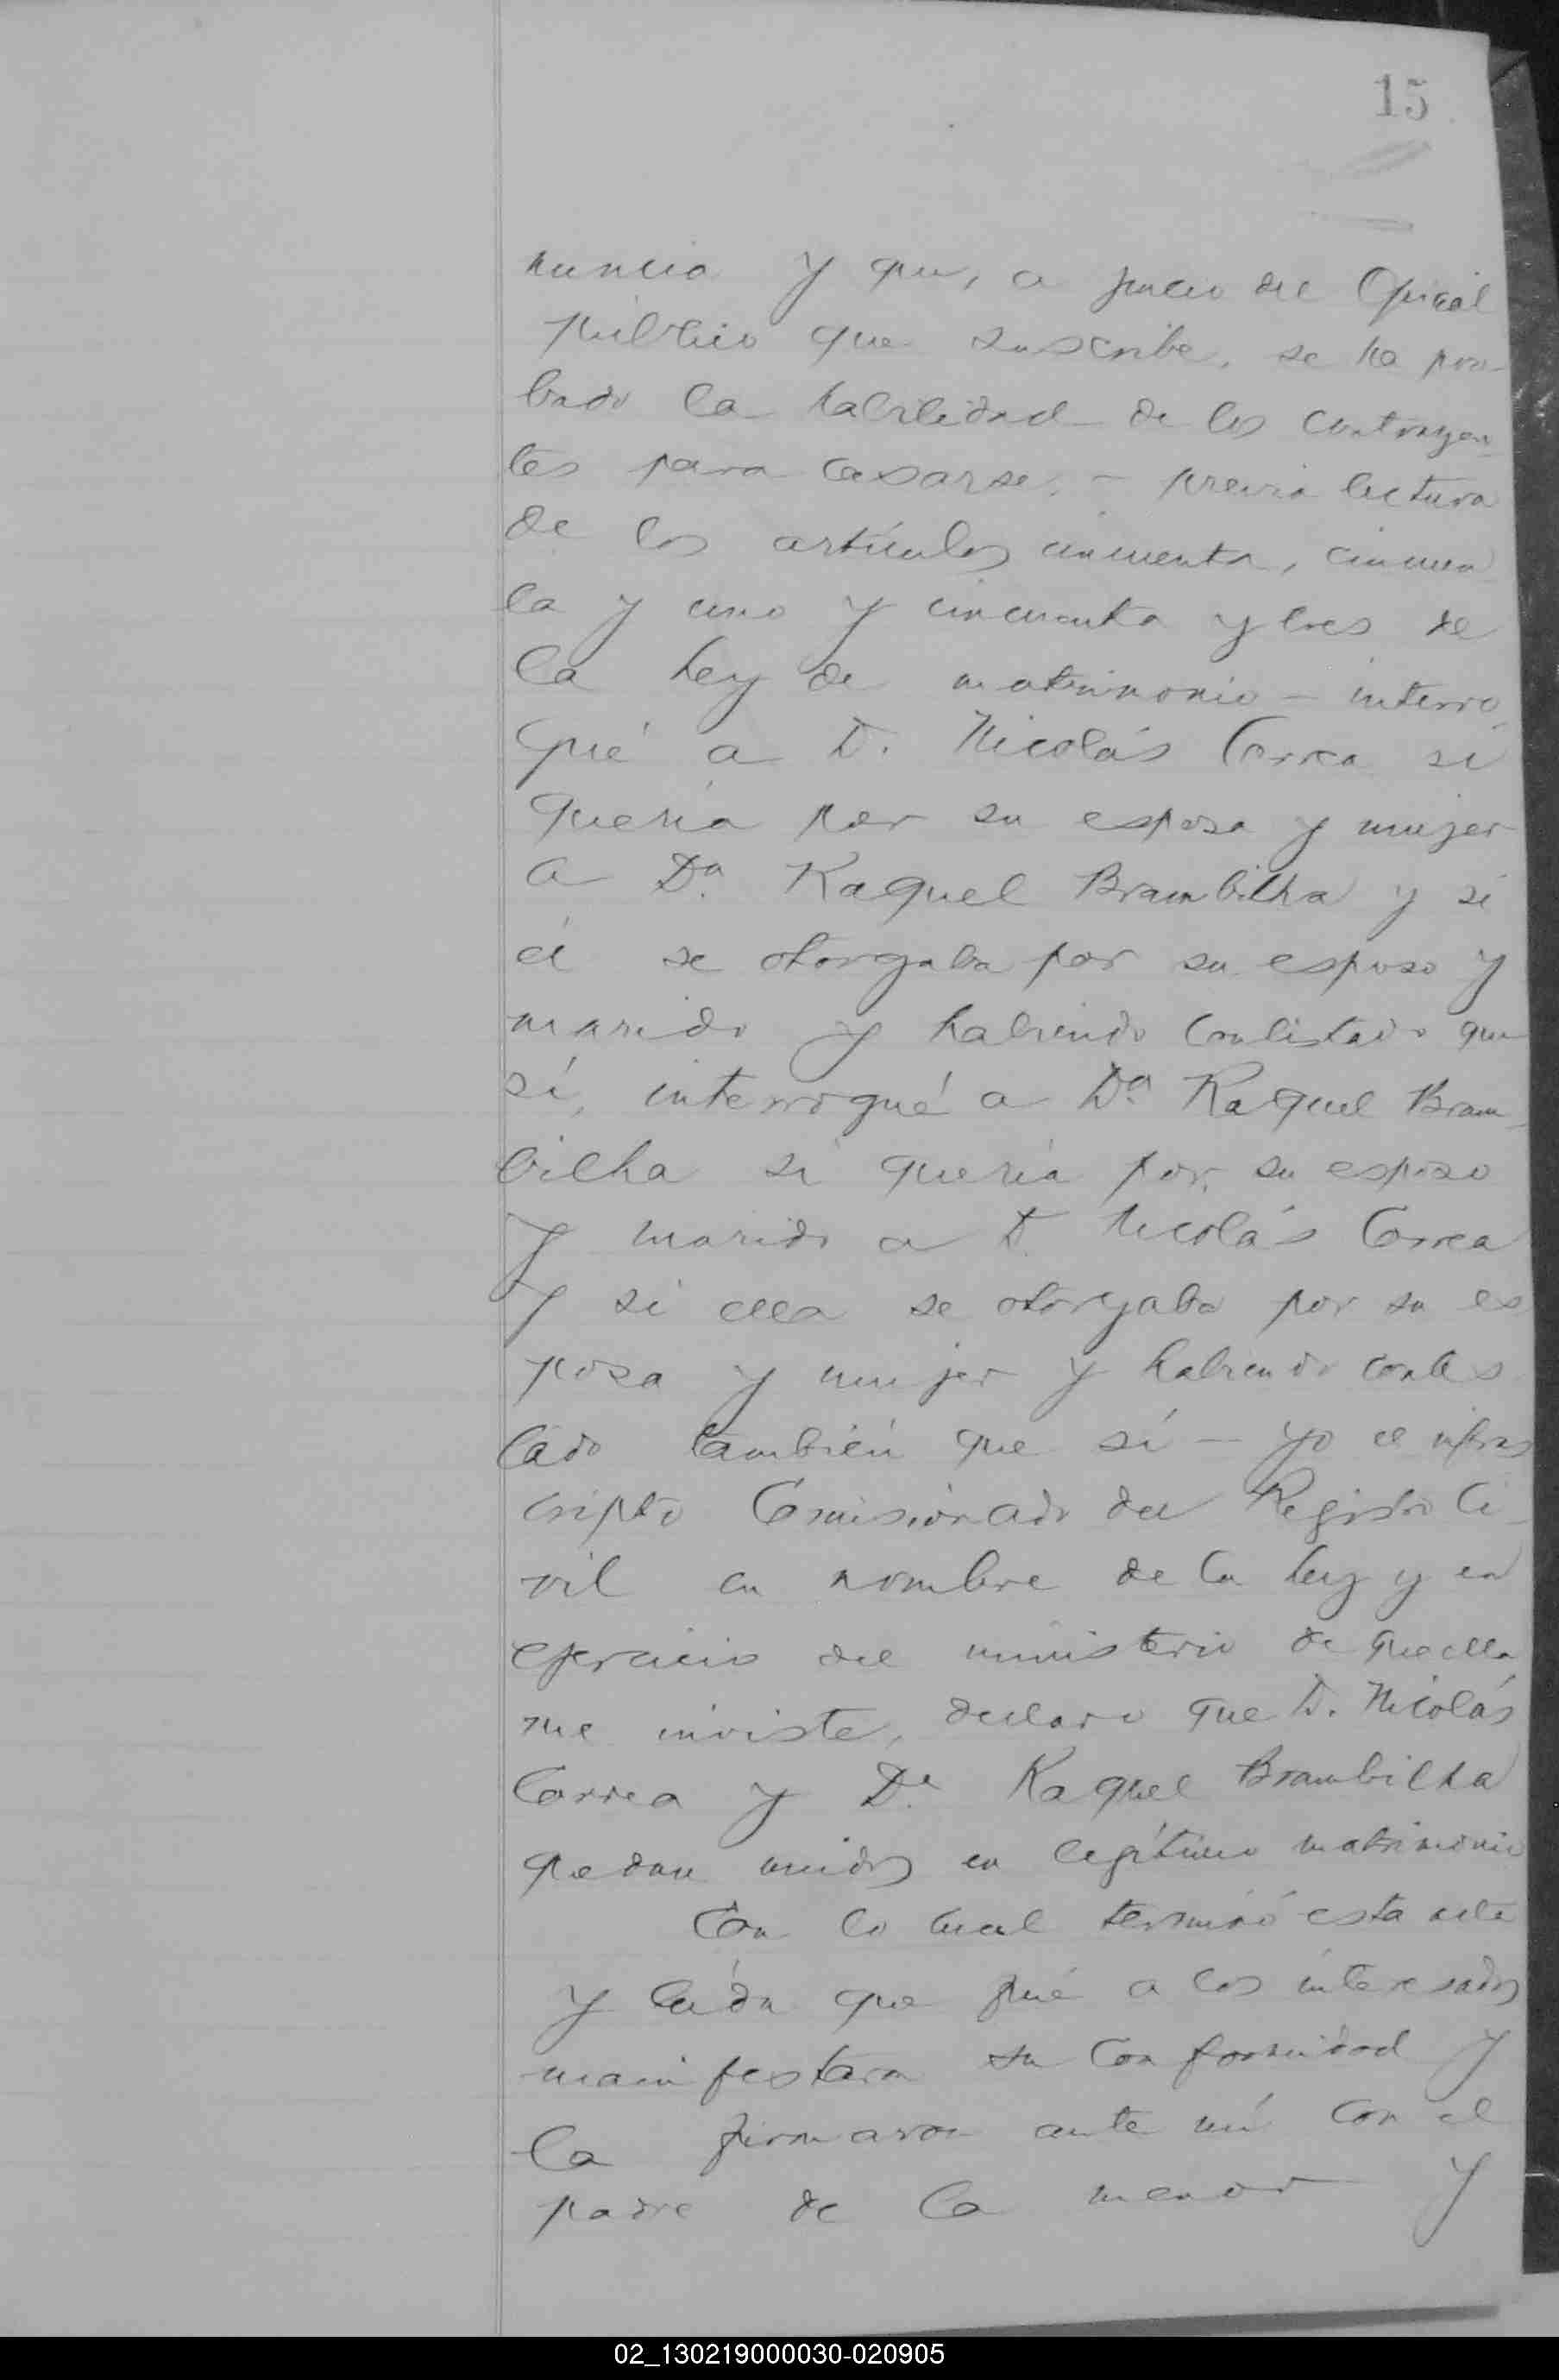 15
nuncia y que, a juicio del Oficial
público que suscribe, se ha pro-
bado la habilidad de los contrayen-
tes para casarse. - previa lectura
de los artículos cincuenta, cincuen
ta y uno y cincuenta y tres de
la ley de matrimonio - interro-
gué a D. Nicolás Correa si
quería por su esposa y mujer
a Da. Raquel Brambilha y si
él se otorgaba por su esposo y
marido y habiendo contestado que
sí, interrogué a Da. Raquel Bram-
bilha si quería por su esposo
y marido a D. Nicolás Correa
y si ella se otorgaba por su es
posa y mujer y habiendo contes
tado también que sí - yo el infras
cripto Comisionado del Registro Ci-
vil en nombre de la ley y en
ejercicio del ministerio de que ella
me inviste, declaro que D. Nicolás
Correa y Da. Raquel Brambilha
quedan unidos en legítimo matrimonio
Con lo cual terminó esta acta
y leída que fué a los interesados
manifestaron su conformidad y
la firmaron ante mí con el
padre de la menor y
02_130219000030-020905